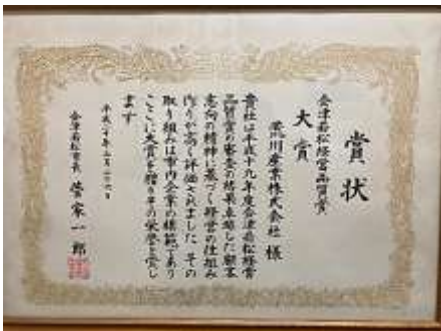 賞状
会津若松経営品質賞
大賞
荒川産業株式会社 様
貴社は平成十九年度会津若松経営
品質賞の審査の結果卓越した顧客
志向の精神に基づく経営の仕組み
作りが高く評価されました その
取り組みは市内企業の模範であり
ここに大賞を贈りその栄誉を賞し
ます
平成二十年二月二十六日
会津若松市長 菅家一郎